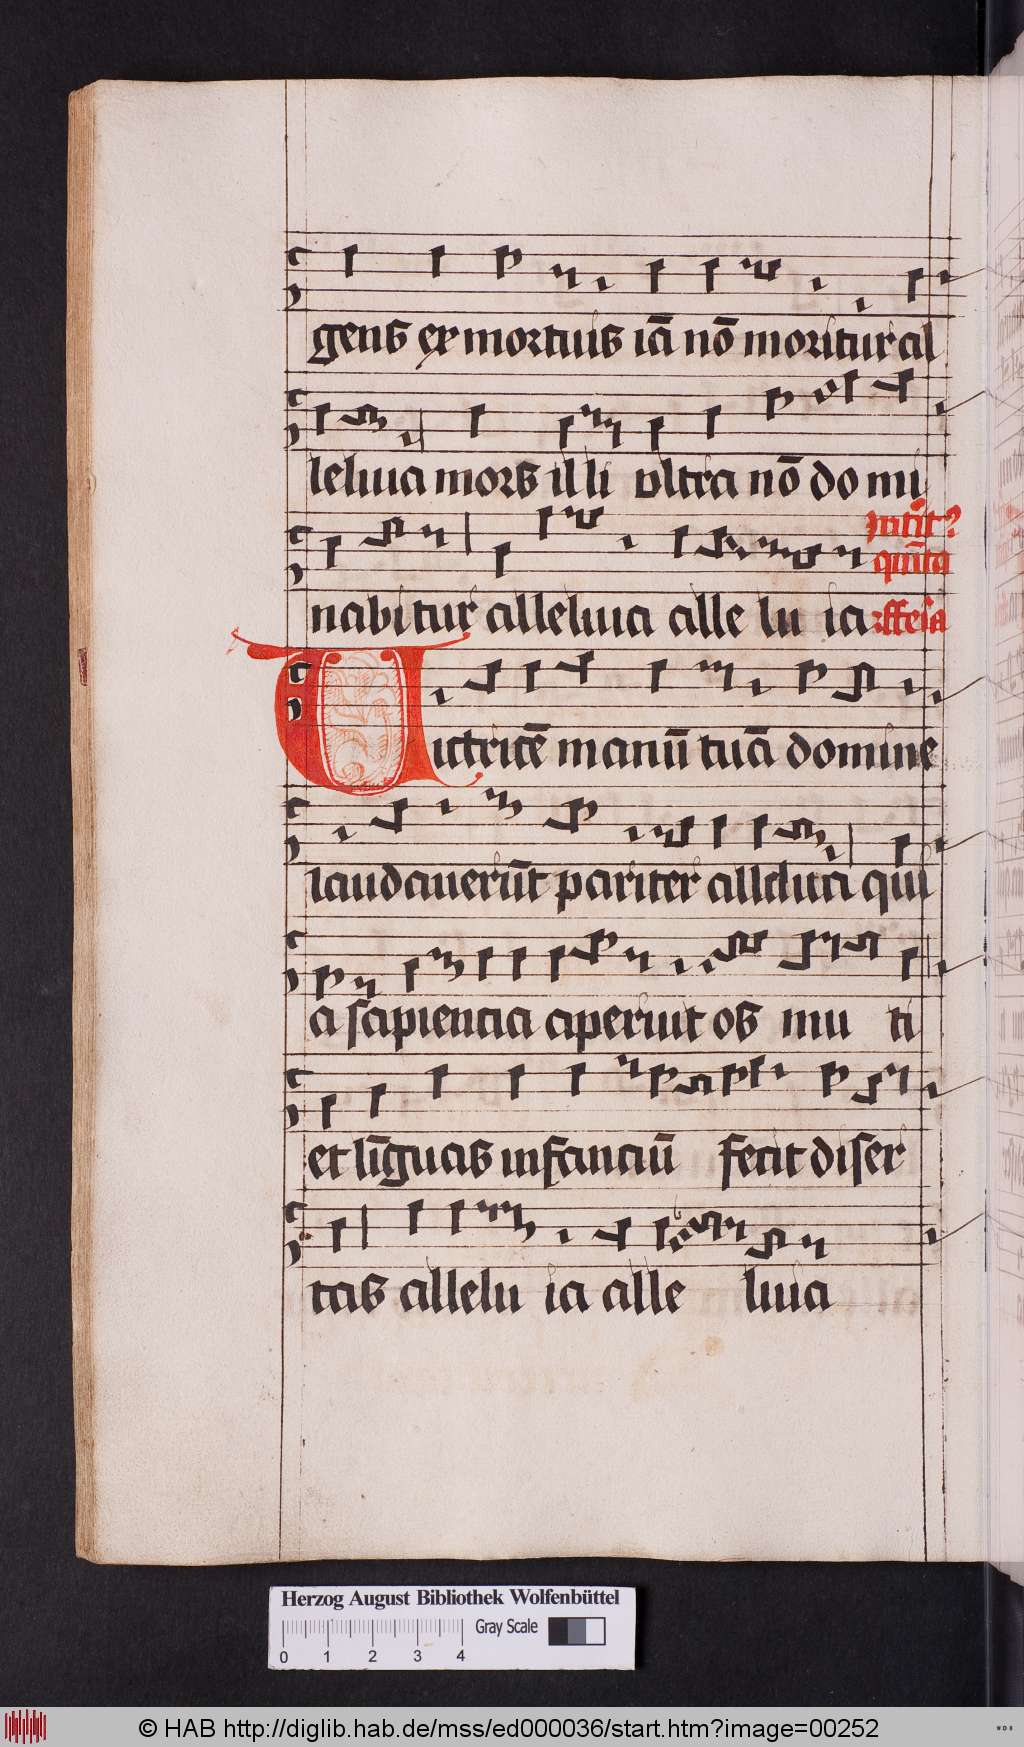 gens ex mortuis iā nō moritur al
leluia mors illi vltra nō do mi
Introit?
quīta
nabitur alleluia alle lu ia
ffeīa
Victricē manū tuā domine
laudauerūt pariter alleluia qui
a sapiencia aperuit os mu ti
et līguas infanciū fecit diser
tas allelu ia alle luia
Herzog August Bibliothek Wolfenbüttel
Gray Scale
0 1 2 3 4
© HAB http://diglib.hab.de/mss/ed000036/start.htm?image=00252